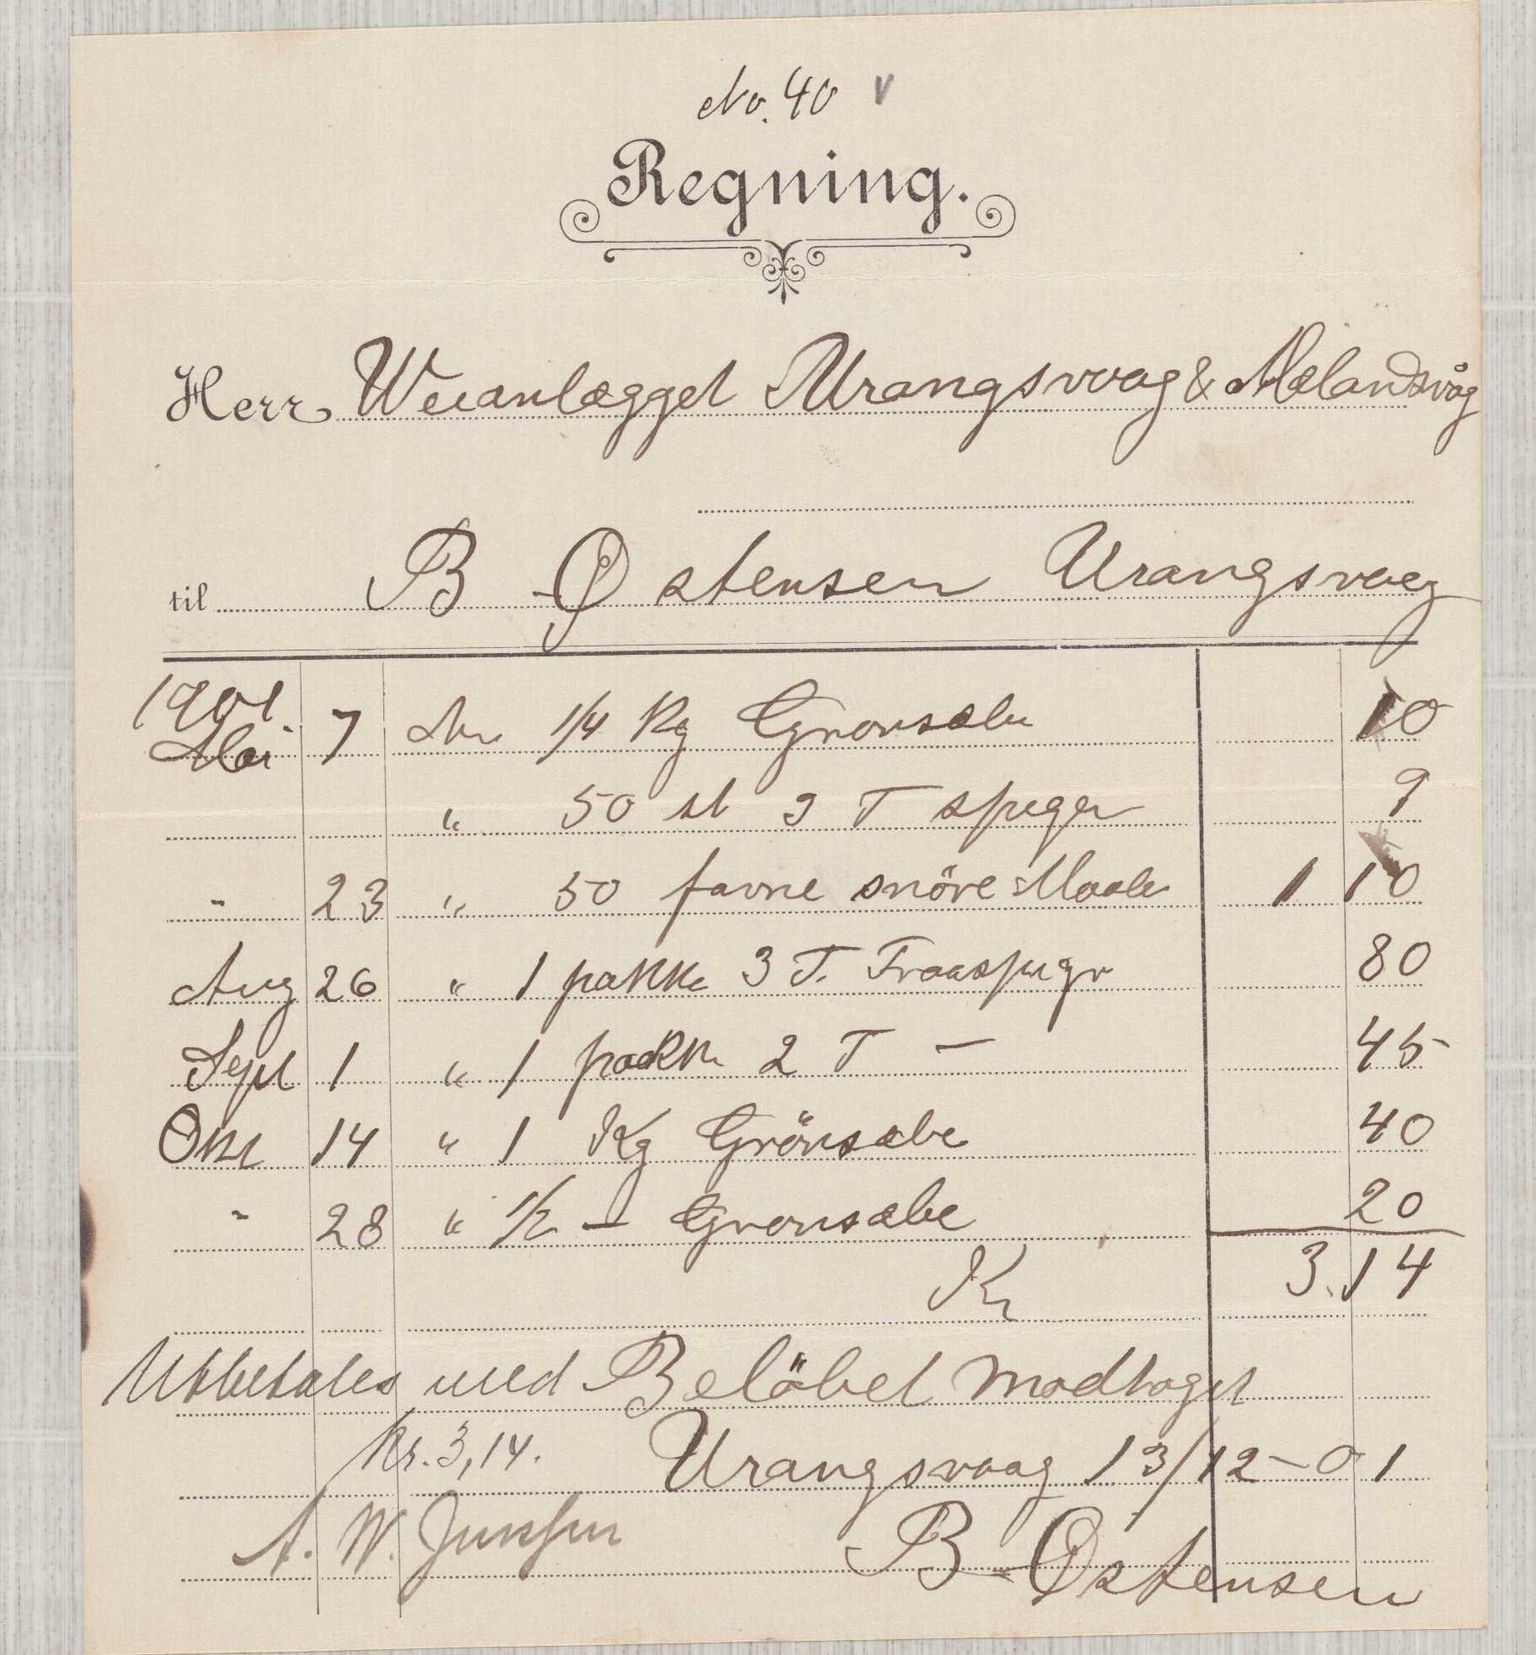 No. 40 v
Regning.
Herr Weianlægget Urangsvaag & Mælandsvåg
til B Østensen Urangsvaag
1901.
Mai 7 An 1/4 Kg Gronsæbe 10
" 50 st 3 T spiger 9
" 23 " 50 favne snöre Maale 1 10
Aug 26 " 1 pakke 3 T. Traaspiger 80
Sept 1 " 1 pakke 2 T — 45
Okt 14 " 1 Kg Grönsæbe 40
" 28 " 1/2 — Gronsæbe 20
Kr 3.14
Utbetales med
Kr. 3,14.
A. W. Jensen
Belöbet modtaget
Urangsvaag 13/12-01
B Østensen